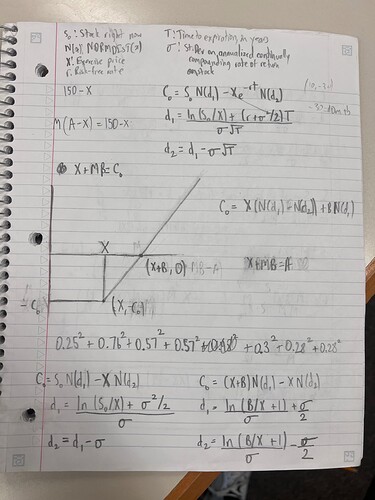 S₀: Stock right now
N(z): NORMDIST(z)
X: Exercise price
r: Risk-free rate
T: Time to expiration in years
σ: St. Dev on annualized continually
compounding rate of return
on stock
150-x
C₀ = S₀ N(d₁) - Xe^-rT N(d₂)
M(A-X) = 150-X
d₁ = ln(S₀/X) + (r+σ²/2)T / σ√T
d₂ = d₁ - σ√T
X+MB = C₀
C₀ = X(N(d₁) - N(d₂)) + BN(d₁)
X
(X+B, 0)
X+MB = A
-C₀
(X, -C₀)
0.25² + 0.76² + 0.57² + 0.57² + 0.3² + 0.28² + 0.28²
C₀ = S₀ N(d₁) - X N(d₂)
d₁ = ln(S₀/X) + σ²/2 / σ
d₂ = d₁ - σ
C₀ = (X+B)N(d₁) - X N(d₂)
d₁ = ln(B/X + 1) / σ + σ/2
d₂ = ln(B/X + 1) / σ - σ/2